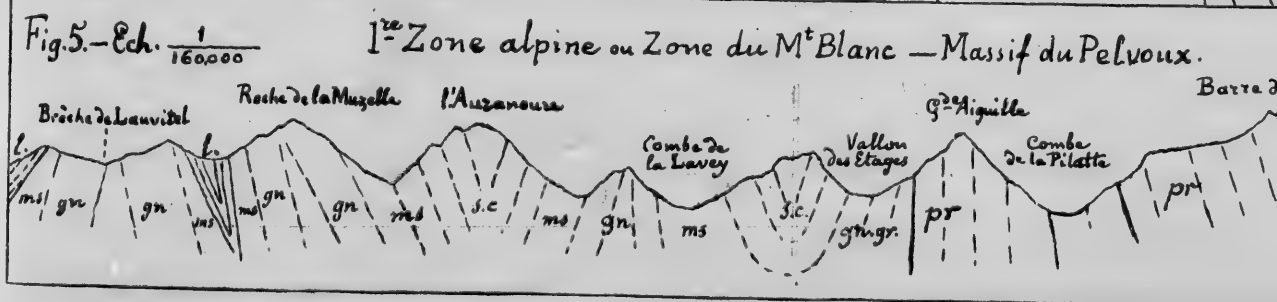 Fig.5.-Ech. 1/160,000 1re Zone alpine ou Zone du Mt Blanc — Massif du Pelvoux.
Brèche de Lauvitel Roche de la Muzelle l'Auzanoure Combe de la Lavey Vallon des Etages Gde Aiguille Combe de la Pilatte Barre d
l. l.
ms gn gn ms ms gn gn ms s.c ms gn ms s.c. gn.gr. pr pr